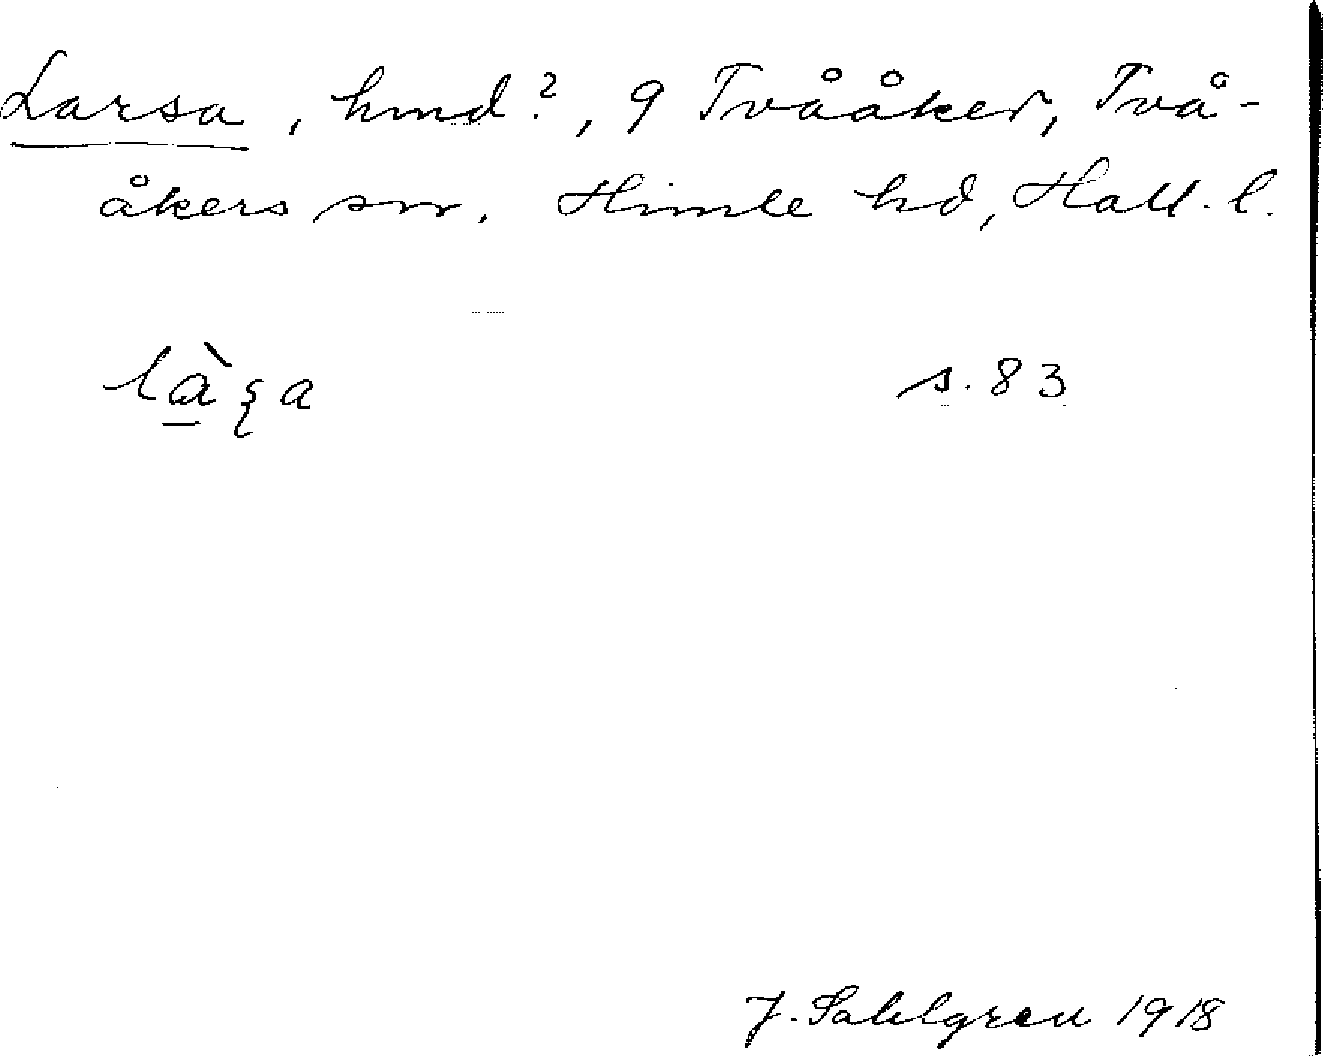 Larsa, hmd?, 9 Tvååker, Två-
åkers sn. Himle hd, Hall. l.
s. 83
J. Sahlgren 1918